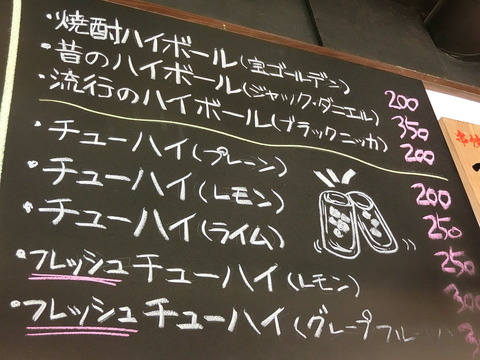 ・焼酎ハイボール(宝ゴールデン) 200
・昔のハイボール(ジャック・ダニエル) 350
・流行のハイボール(ブラックニッカ) 200
・チューハイ(プレーン) 200
・チューハイ(レモン) 250
・チューハイ(ライム) 250
・フレッシュチューハイ(レモン) 300
・フレッシュチューハイ(グレープフルー